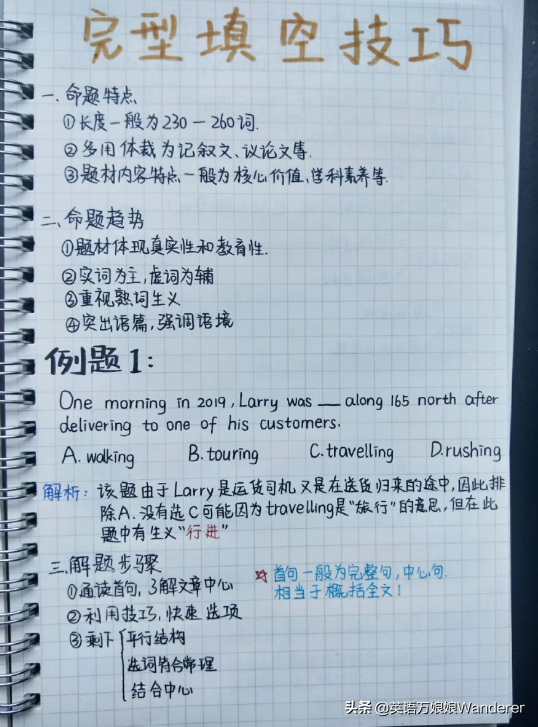 完型填空技巧
一、命题特点
①长度一般为230—260词.
②多用体裁为记叙文、议论文等.
③题材内容特点一般为核心价值、学科素养等.
二、命题趋势
①题材体现真实性和教育性.
②实词为主,虚词为辅
③重视熟词生义
④突出语篇,强调语境
例题1:
One morning in 2019, Larry was ___ along 165 north after
delivering to one of his customers.
A. walking B. touring C. travelling D. rushing
解析: 该题由于Larry是运货司机又是在送货归来的途中,因此排
除A. 没有选C可能因为travelling是“旅行”的意思,但在此
题中有生义“行进”
三、解题步骤
①通读首句,了解文章中心
☆首句一般为完整句,中心句.
相当于概括全文!
②利用技巧,快速选项
③剩下 平行结构
选词符合常理
结合中心
头条 @英语万娘娘Wanderer